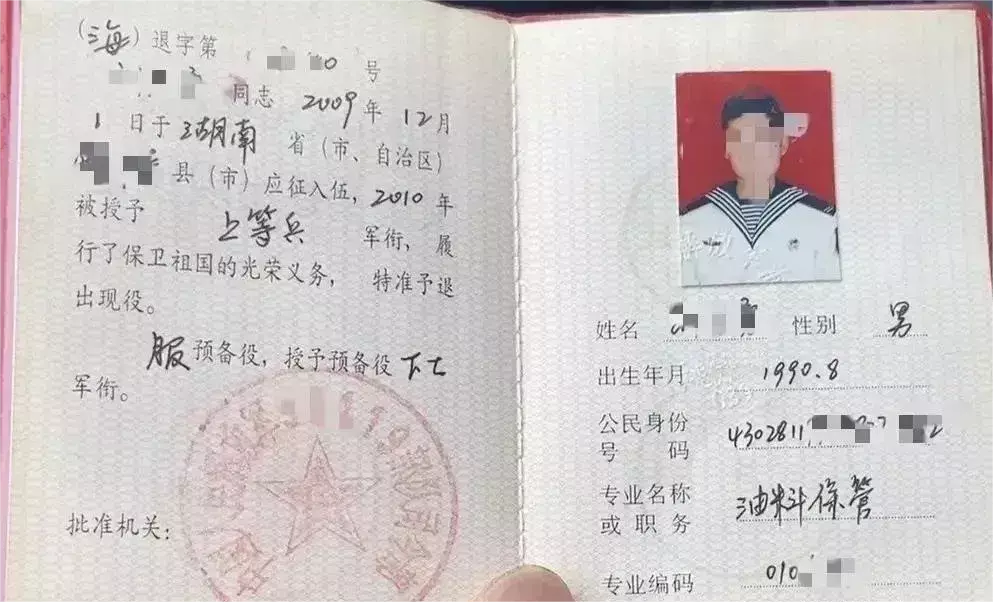 （海）退字第 0号
同志 2009年 12月
1 日于 湖南 省（市、自治区）
县（市）应征入伍，2010 年
被授予 上等兵 军衔，履
行了保卫祖国的光荣义务， 特准予退
出现役。
服预备役，授予预备役 下士
军衔。
批准机关：
姓名 性别 男
出生年月 1990.8
公民身份
号 码 4302811
专业名称
或 职 务 油料保管
专业编码 010